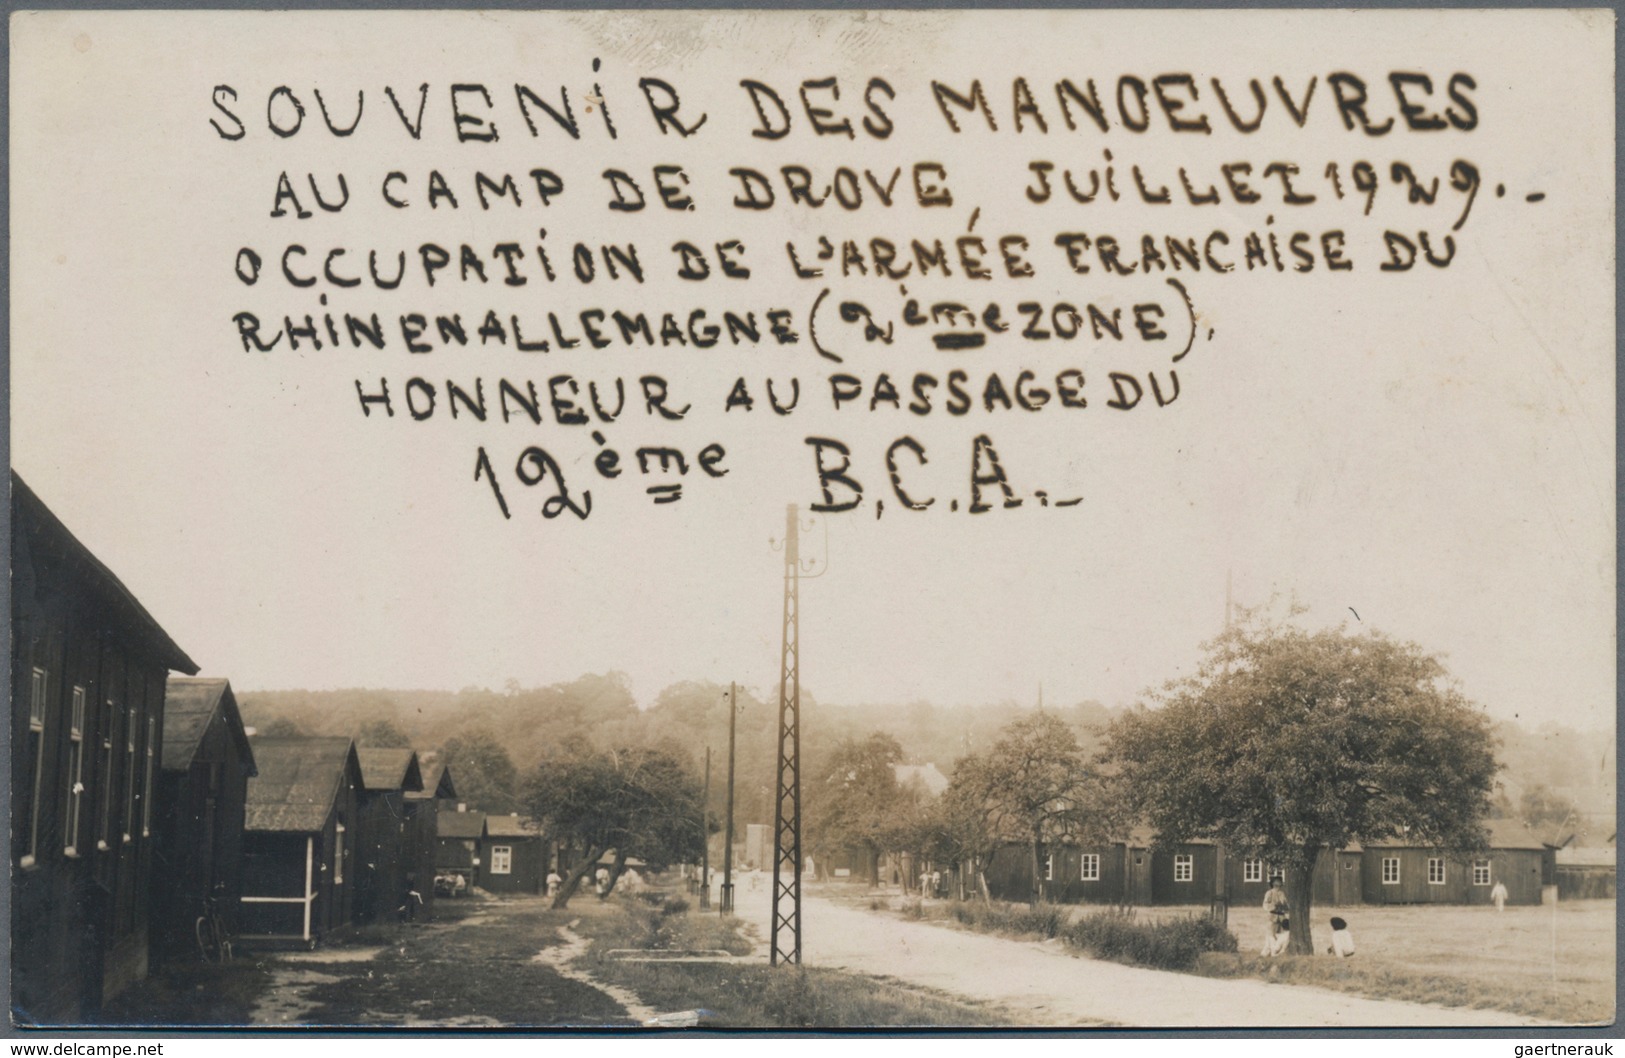 SOUVENIR DES MANOEUVRES
AU CAMP DE DROVE, JUILLET 1929.-
OCCUPATION DE L'ARMÉE FRANCAISE DU
RHIN EN ALLEMAGNE (2ème ZONE),
HONNEUR AU PASSAGE DU
12ème B.C.A.-
www.delcampe.net
gaertnerauk